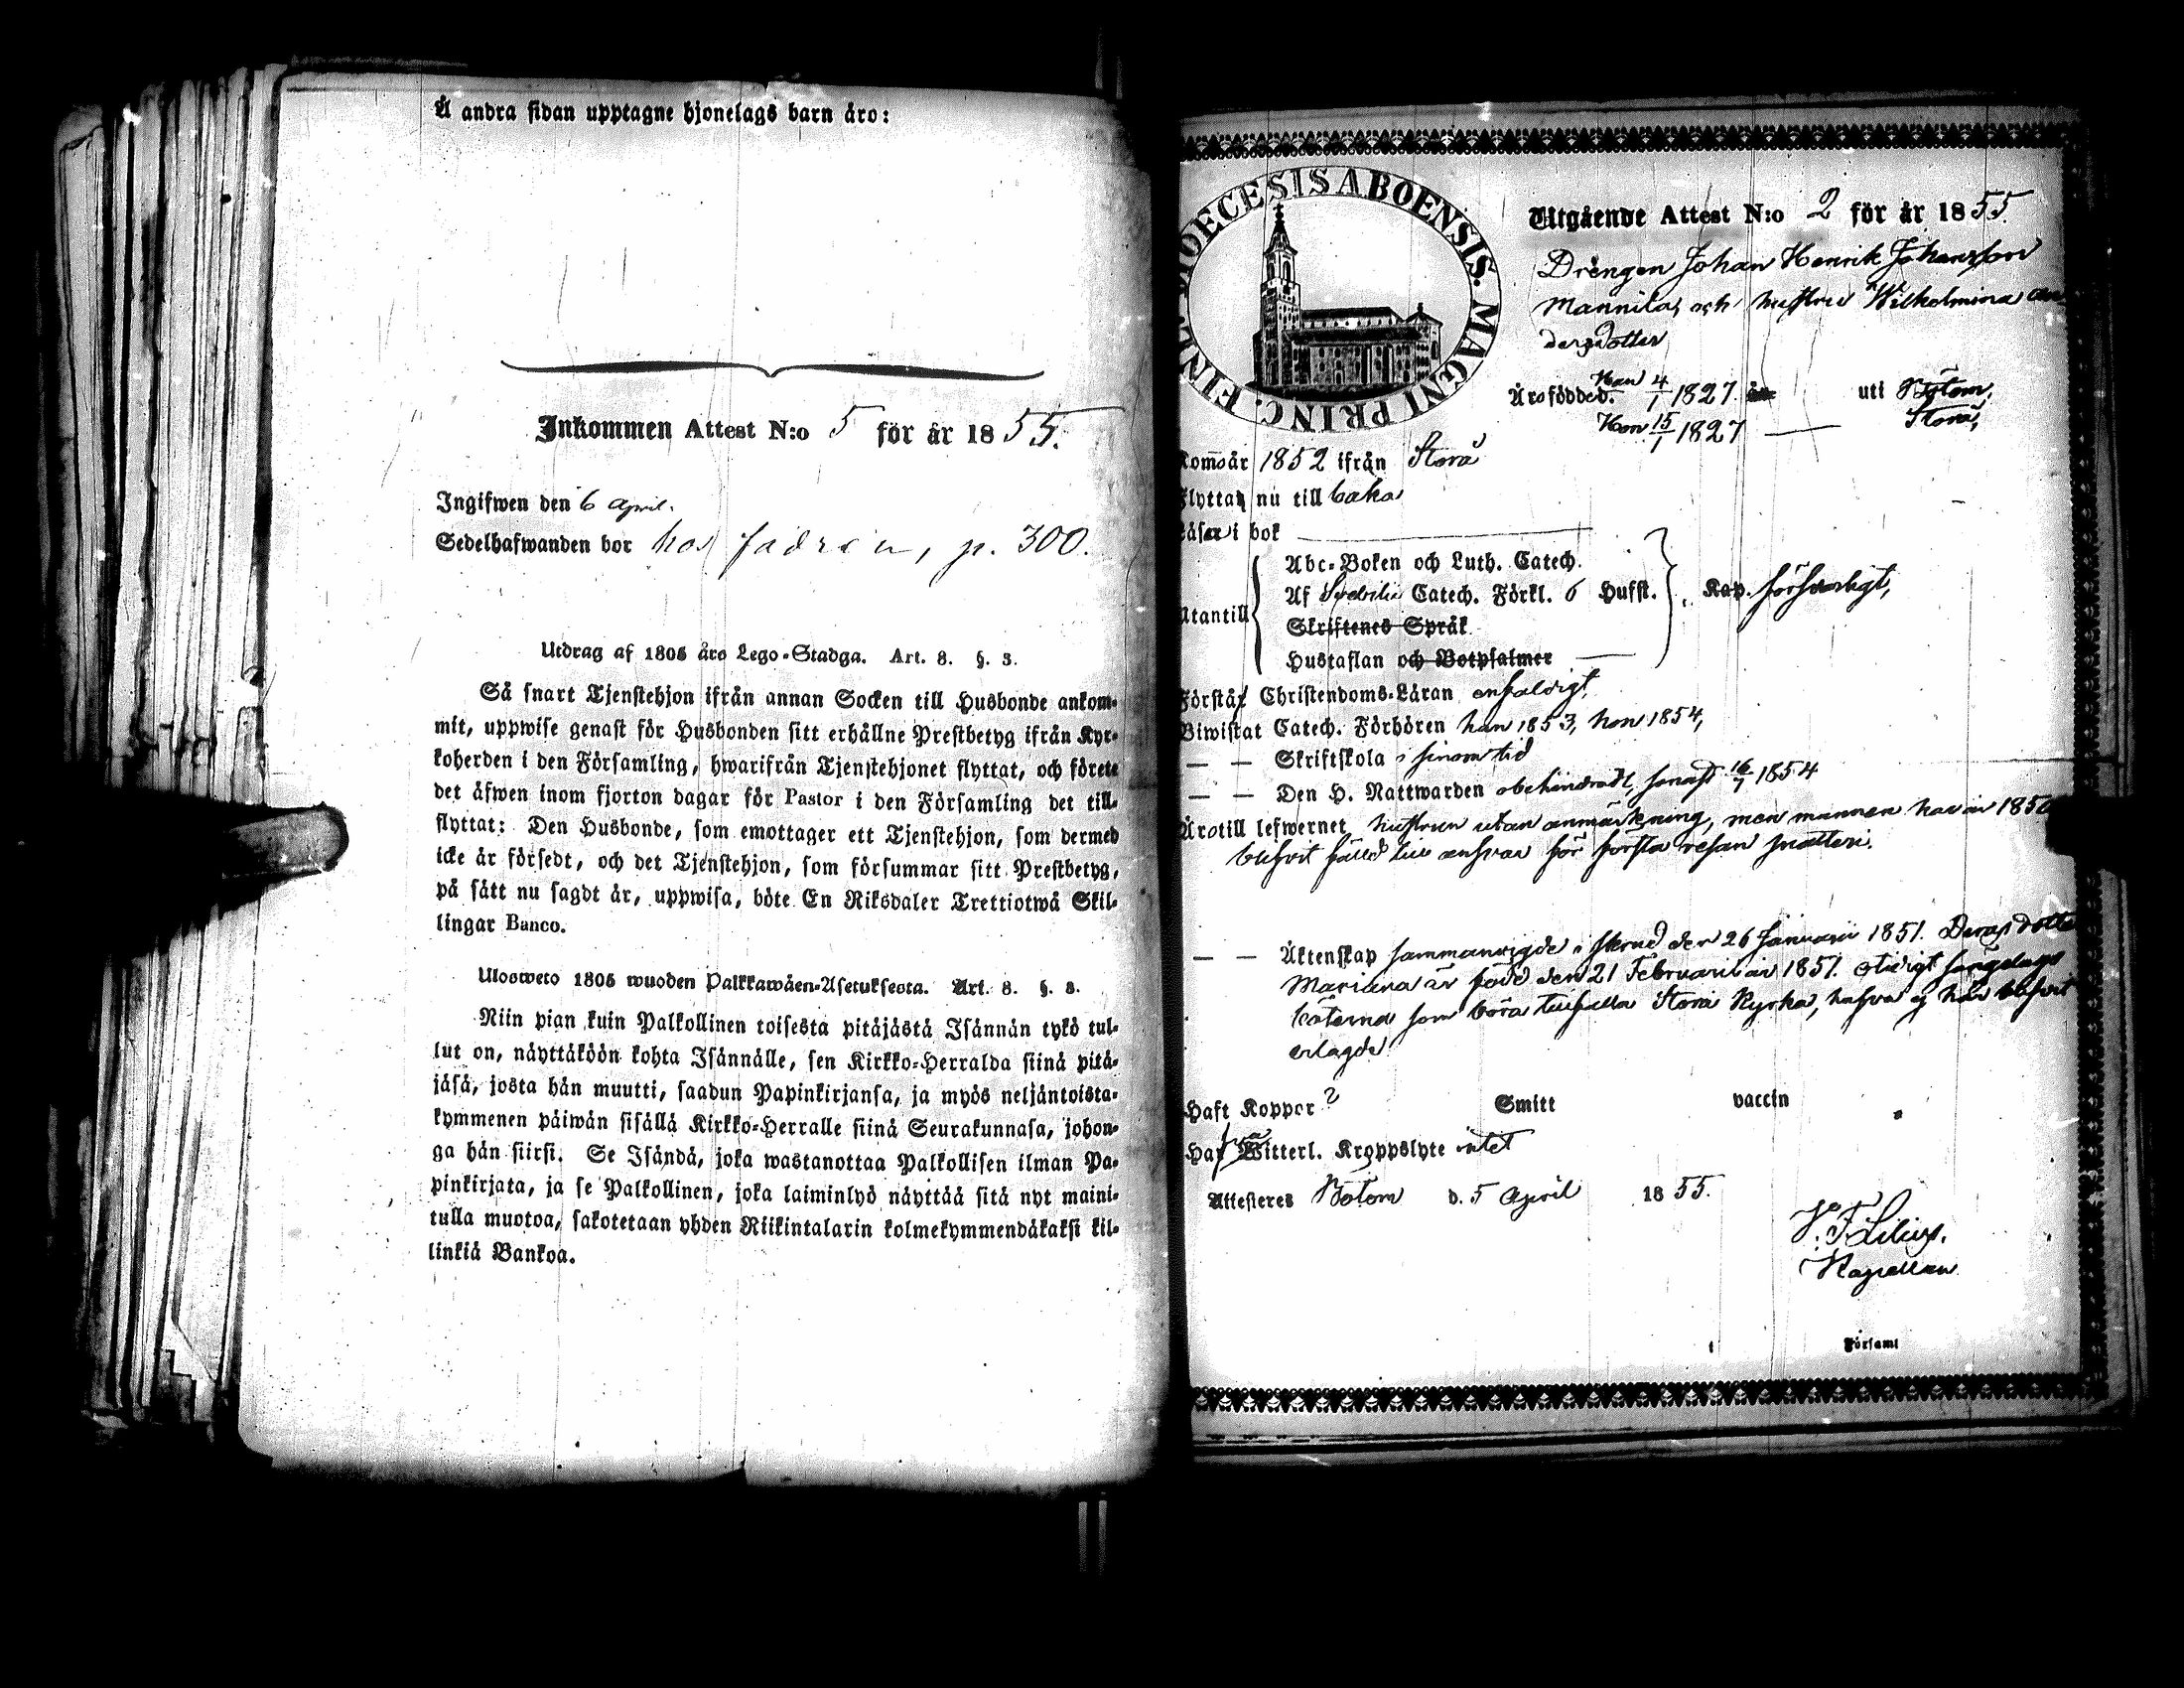 Å andra sidan upptagne hjonelags barn äro:
Inkommen Attest N:o 5 för år 1855.
Ingifwen den 6 April.
Sedelhafwanden bor hos fadren, p. 300.
Utdrag af 1805 års Lego-Stadga. Art. 8. §. 3.
Så snart Tjenstehjon ifrån annan Socken till Husbonde ankom-
mit, uppwise genast för Husbonden sitt erhållne Prestbetyg ifrån Kyr-
koherden i den Församling, hwarifrån Tjenstehjonet flyttat, och förete
det äfwen inom fjorton dagar för Pastor i den Församling det till-
flyttat: Den Husbonde, som emottager ett Tjenstehjon, som dermed
icke är försedt, och det Tjenstehjon, som försummar sitt Prestbetyg,
på sätt nu sagdt är, uppwisa, böte En Riksdaler Trettiotwå Skil-
lingar Banco.
Ulosweto 1805 wuoden Palkkawäen-Asetuksesta. Art. 8. §. 3.
Niin pian kuin Palkollinen toisesta pitäjästä Isännän tykö tul-
lut on, näyttäköön kohta Isännälle, sen Kirkko-Herralda siinä pitä-
jäsä, josta hän muutti, saadun Papinkirjansa, ja myös neljäntoista-
kymmenen päiwän sisällä Kirkko-Herralle siinä Seurakunnasa, johon-
ga hän siirsi. Se Isändä, joka wastanottaa Palkollisen ilman Pa-
pinkirjata, ja se Palkollinen, joka laiminlyö näyttää sitä nyt maini-
tulla muotoa, sakotetaan yhden Riikintalarin kolmekymmendäkaksi kil-
linkiä Bankoa.
DIOECESIS ABOENSIS. MAGNI PRINC. FINL.
Utgående Attest N:o 2 för år 1855
Drängen Johan Henrik Johansson
Mannila, och hustru Wilhelmina An
dersdotter
Äro födde d. Han 4/1 1827 uti Bötom,
Hon 15/1 1827 — Storå,
Kom år 1852 ifrån Storå
Flyttar nu till baka
Läser i bok
Abc-Boken och Luth. Catech.
Utantill Af Svebilii Catech. Förkl. 6 Hufst. Kap. försvarligt,
Skriftenes Språk
Hustaflan och Botpsalmer
Förstår Christendoms-Läran enfaldigt,
Biwistat Catech. Förhören han 1853, hon 1854,
— — Skriftskola i sinom tid
— — Den H. Nattwarden obehindradt, senast 16/7 1854
Äro till lefwernet hustrun utan anmärkning, men mannen har år 1850
blifvit fälld till ansvar för första resan snatteri.
— — Äktenskap sammanvigde i Storå den 26 Januarii 1851. Deras dotter
Mariana är född den 21 Februarii år 1851. Otidigt sängelags
böterna som böra tillfalla Storå Kyrka, hafva ej här blifvit
erlagde
Haft Koppor ? Smitt vaccin
Har Witterl. Kroppslyte intet
Attesteres Bötom d. 5 April 1855.
J. F. Lilius.
Kapellan
Församl